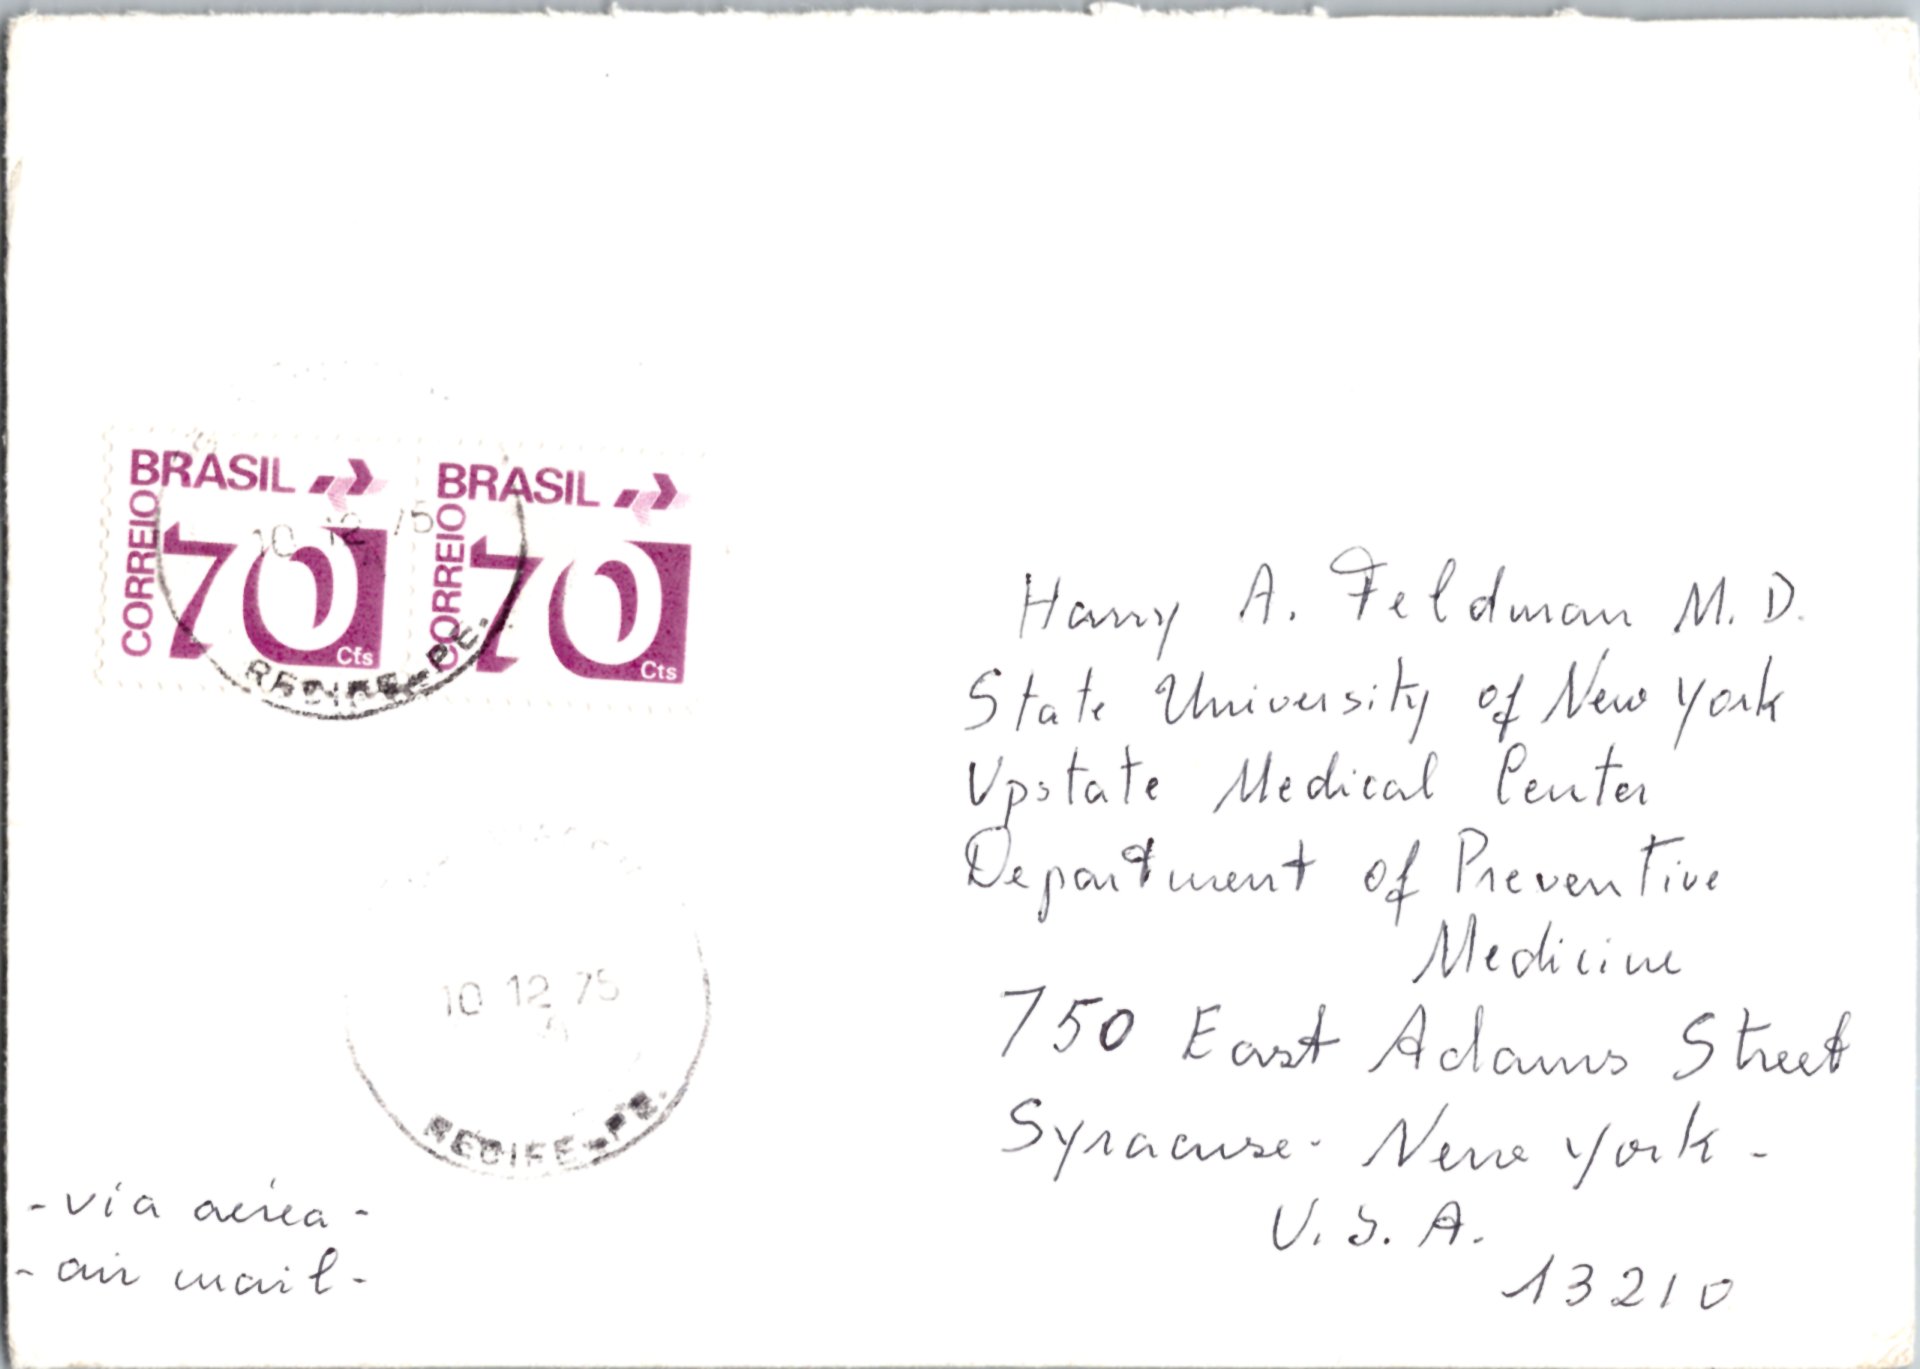 BRASIL
CORREIO
70
Cts
BRASIL
CORREIO
70
Cts
10 12 75
RECIFE-PE.
Harry A. Feldman M.D.
State University of New York
Upstate Medical Center
Department of Preventive
Medicine
750 East Adams Street
Syracuse - New York -
U.S.A.
13210
10 12 75
RECIFE-PE.
- vía aérea -
- air mail -